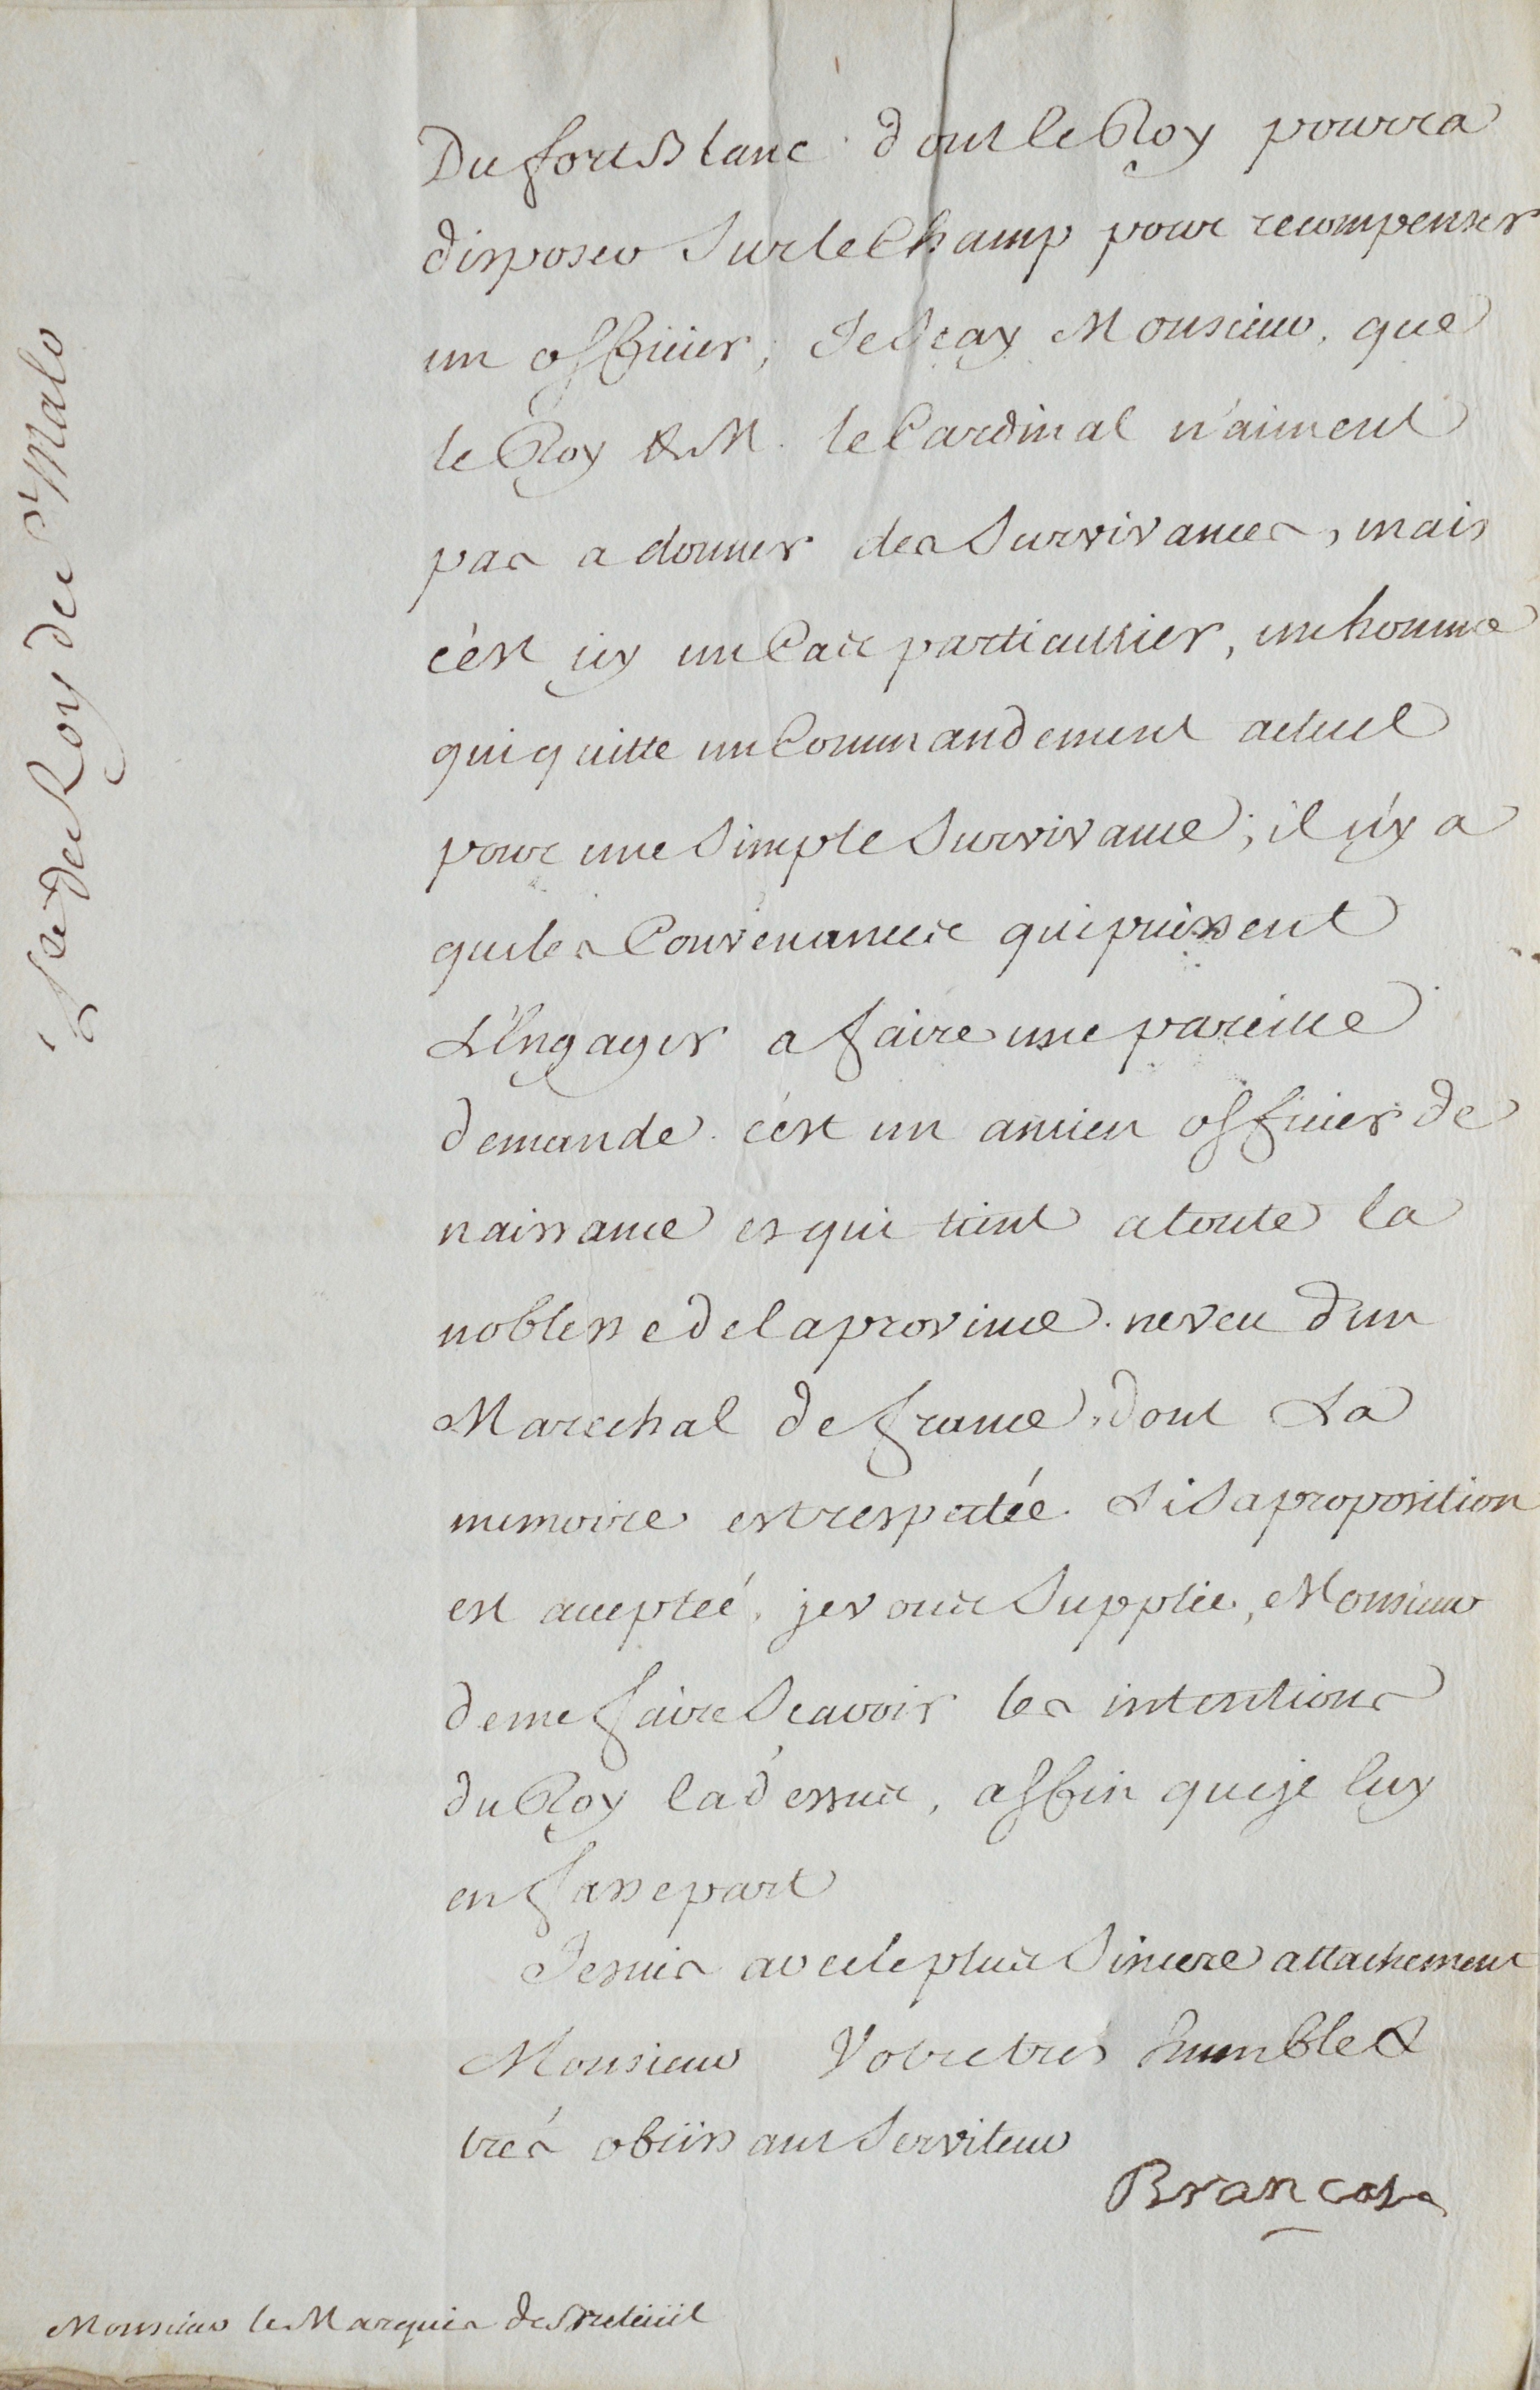 Du fort Blanc dont le Roy pourra
disposer Sur le Champ pour recompenser
un officier; Je Scay Monsieur, que
le Roy & M. le Cardinal n'aiment
pas a donner des Survivances, mais
c'est icy un Cas particullier, un homme
qui quitte un Commandement actuel
pour une Simple Survivance; il n'y a
que les Convenances qui puissent
L'Engager a faire une pareille
demande. c'est un ancien officier de
naissance et qui tient a toute la
noblesse de la province. neveu d'un
Marechal de france, dont La
memoire est respectée. Si Sa proposition
est acceptée, je vous Supplie, Monsieur
de me faire Scavoir les intentions
du Roy la dessus, affin que je luy
en fasse part
Je suis avec le plus Sincere attachement
Monsieur Votre tres humble &
trés obeissant Serviteur
Brancas
Monsieur le Marquis de Breteüil
Lt. de Roy de St Malo